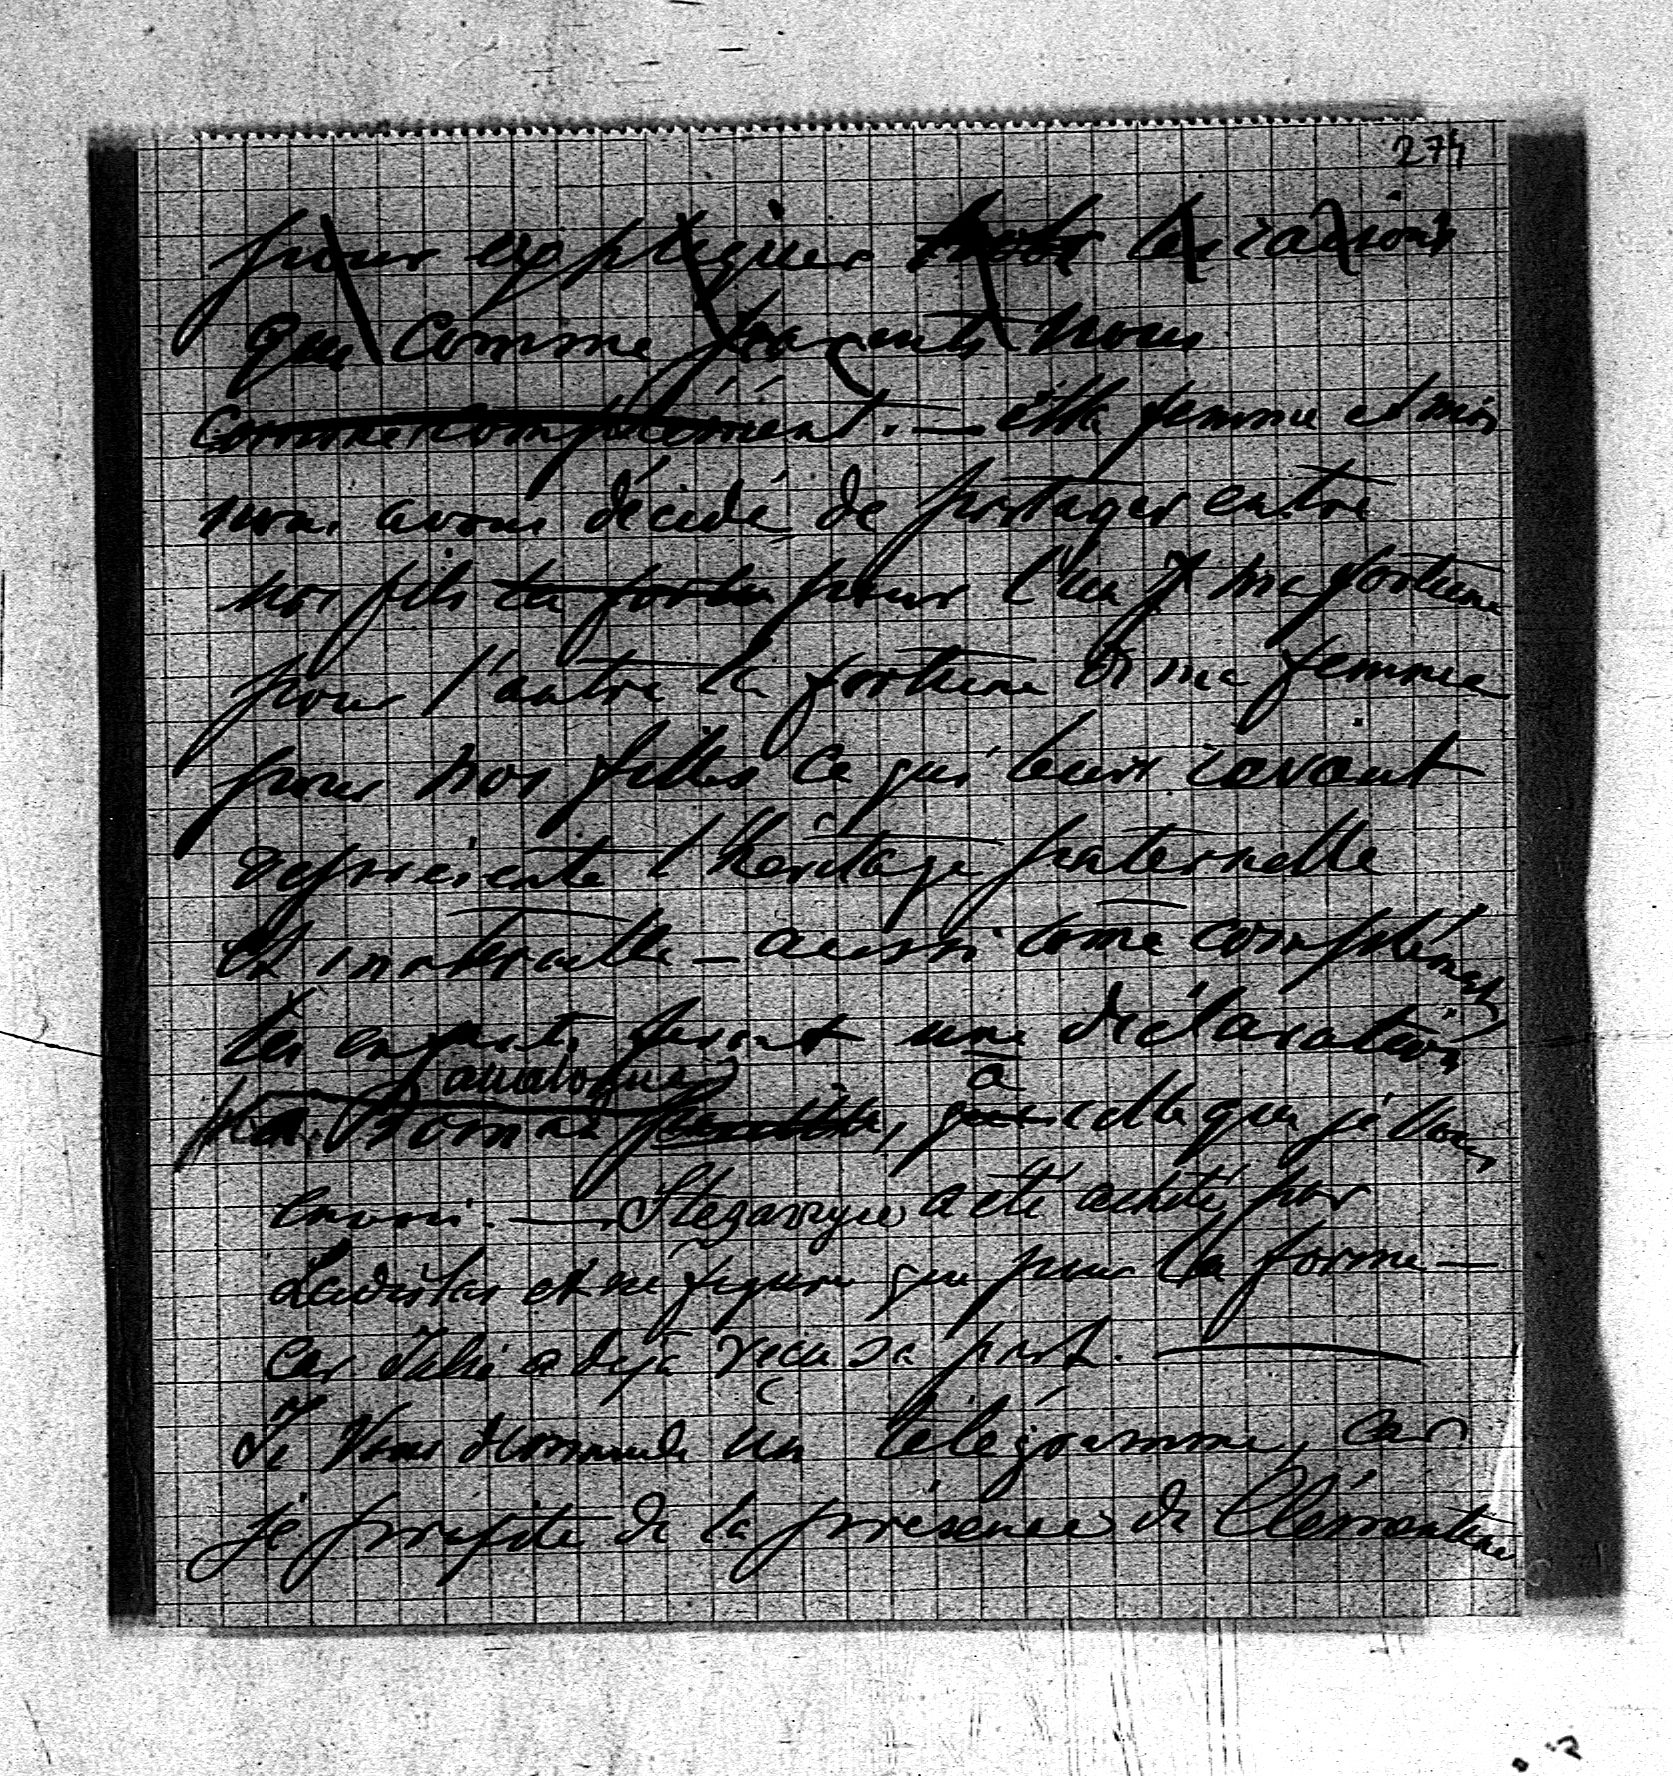 274
pour expliquer les raisons
que comme parents nous
comme complément. — Ma femme et moi
nous avons décidé de partager entre
nos fils la fortu pour l'un ma fortune
pour l'autre la fortune de ma femme
pour nos filles ce qui leur revient
représente l'héritage paternelle
et maternelle – aussi come complément
les enfants feront une déclaration
analogue à
celle que je vous
envoi. — a été acheté par
et ne figure que pour la forme —
car a déjà reçu sa part. —
Je vous demande un télégramme, car
je profite de la présence de Clémentine